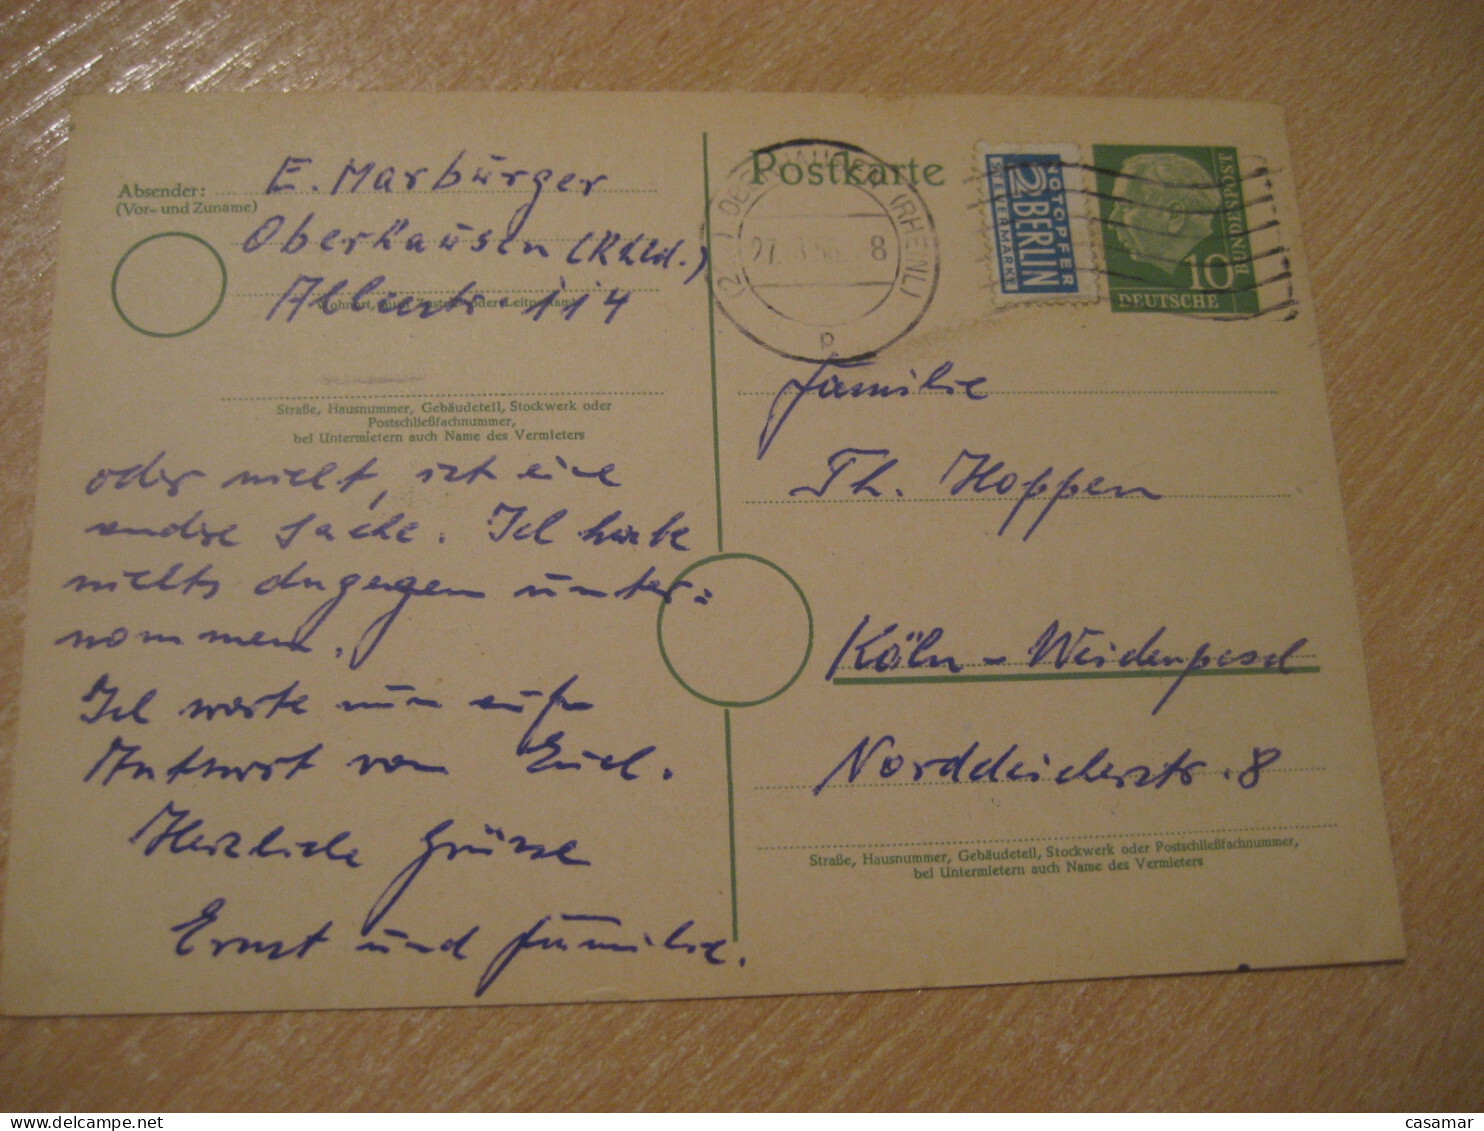 Absender: E. Marburger
(Vor- und Zuname)
Oberhausen (Rhld.)
114
Straße, Hausnummer, Gebäudeteil, Stockwerk oder
Postschließfachnummer,
bei Untermietern auch Name des Vermieters
oder nicht, ist eine
andre Sache. Ich habe
nichts dagegen unter-
nommen.
Ich warte nun auf
Antwort von Euch.
Herzliche Grüsse
Ernst und Familie.
Postkarte
(RHEINL)
27. 8
P
NOTOPFER
2 BERLIN
STEUERMARKE
10
DEUTSCHE
BUNDESPOST
Familie
Th. Hoppen
Köln-Weidenpesch
Norddeicherstr. 8
Straße, Hausnummer, Gebäudeteil, Stockwerk oder Postschließfachnummer,
bei Untermietern auch Name des Vermieters
casamar